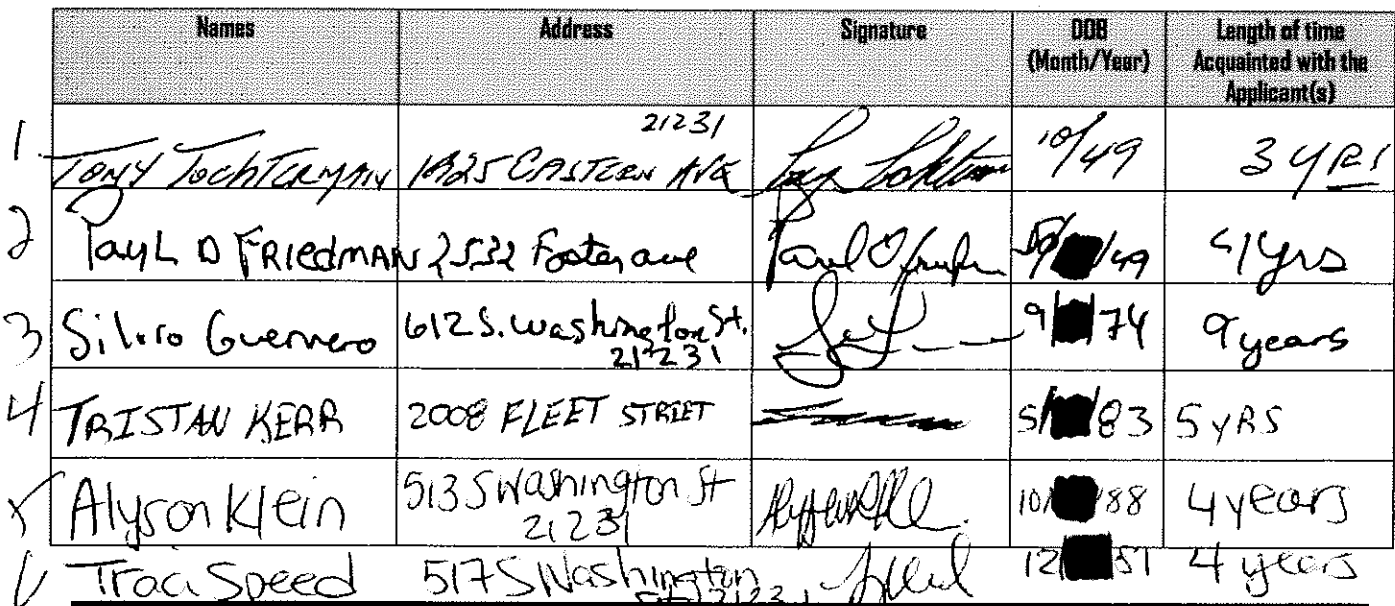 Names Address Signature DOB (Month/Year) Length of time Acquainted with the Applicant(s)
1. TONY TOCHTERMAN 1925 EASTERN AVE 21231 10/49 3 YRS
2 PauL D FRIedMAN 2532 Foster ave /49 4yrs
3 Silvio Guerrero 612 S. Washington St. 21231 9/ /74 9 years
4 TRISTAN KERR 2008 FLEET STREET 5/ /83 5 YRS
5 Alyson Klein 513 S Washington St 21231 10/ /88 4 years
Traci Speed 517 S Washington 21231 12/ 4 years